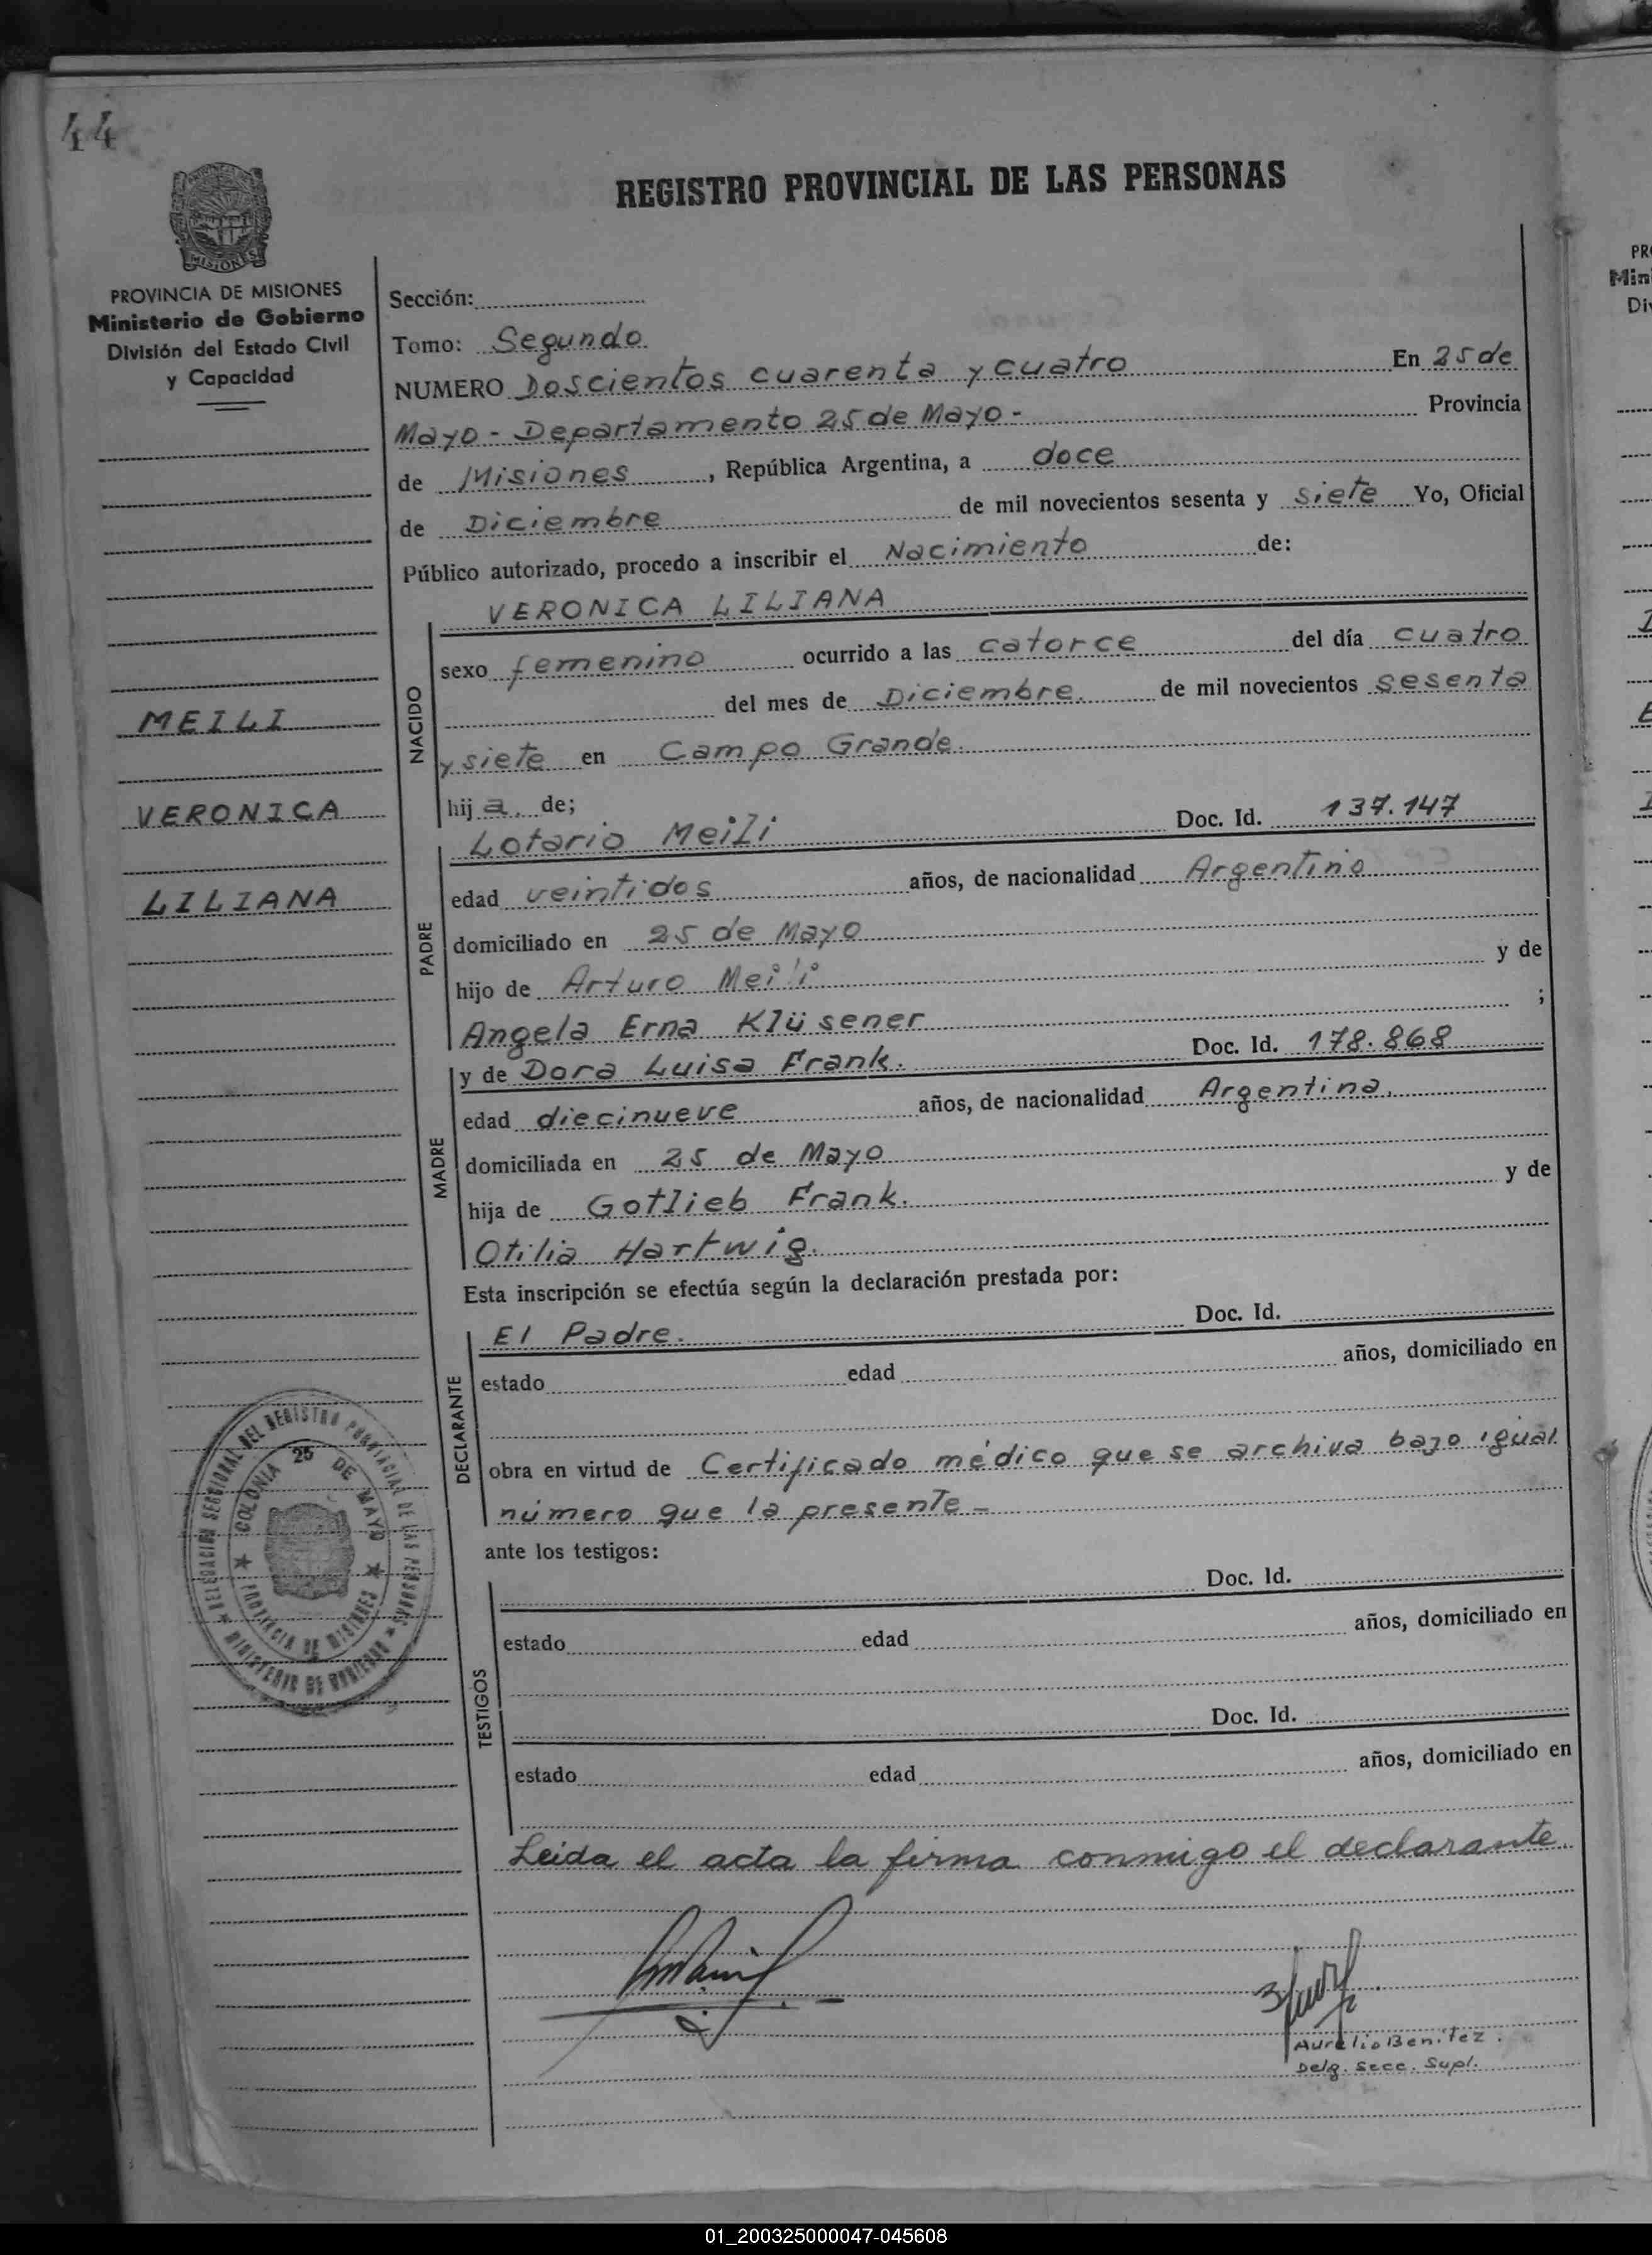 44
REGISTRO PROVINCIAL DE LAS PERSONAS
MISIONES
PROVINCIA DE MISIONES
Ministerio de Gobierno
División del Estado Civil
y Capacidad
Sección:
Tomo: Segundo
NUMERO Doscientos cuarenta y cuatro En 25 de
Mayo - Departamento 25 de Mayo - Provincia
de Misiones, República Argentina, a doce
de Diciembre de mil novecientos sesenta y siete Yo, Oficial
Público autorizado, procedo a inscribir el Nacimiento de:
MEILI
VERONICA
LILIANA
NACIDO
VERONICA LILIANA
sexo femenino ocurrido a las catorce del día cuatro
del mes de Diciembre. de mil novecientos sesenta
y siete en Campo Grande.
hija. de;
PADRE
Lotario Meili Doc. Id. 137.147
edad veintidos años, de nacionalidad Argentino
domiciliado en 25 de Mayo
hijo de Arturo Meili y de
Angela Erna Klüsener ;
MADRE
y de Dora Luisa Frank. Doc. Id. 178.868
edad diecinueve años, de nacionalidad Argentina.
domiciliada en 25 de Mayo
hija de Gotlieb Frank. y de
Otilia Hartwig.
Esta inscripción se efectúa según la declaración prestada por:
DECLARANTE
El Padre. Doc. Id.
estado edad años, domiciliado en
obra en virtud de Certificado médico que se archiva bajo igual
número que la presente -
ante los testigos:
TESTIGOS
Doc. Id.
estado edad años, domiciliado en
Doc. Id.
estado edad años, domiciliado en
Leida el acta la firma conmigo el declarante.
Aurelio Benitez.
Delg. Secc. Supl.
DELEGACION SECCIONAL DEL REGISTRO PROVINCIAL DE LAS PERSONAS
MINISTERIO DE GOBIERNO
COLONIA 25 DE MAYO
PROVINCIA DE MISIONES
01_200325000047-045608